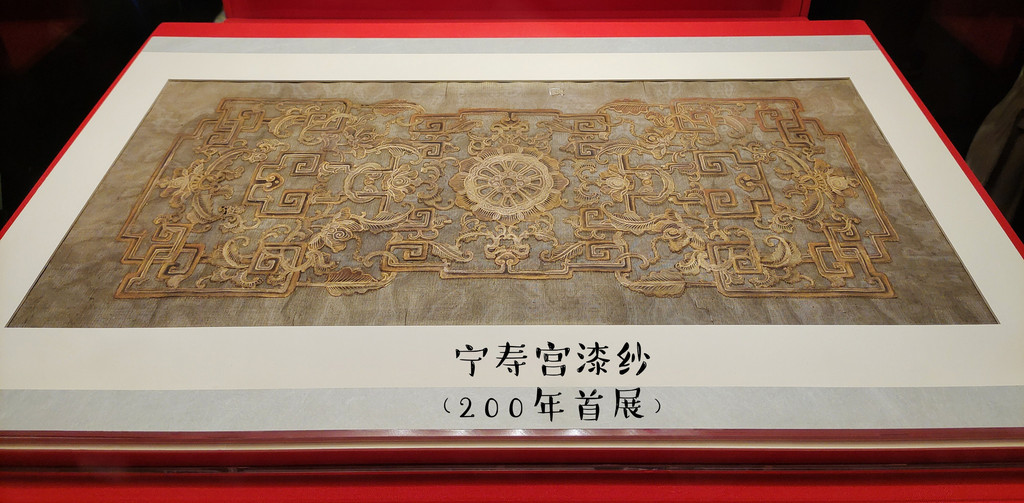 宁寿宫漆纱
（200年首展）